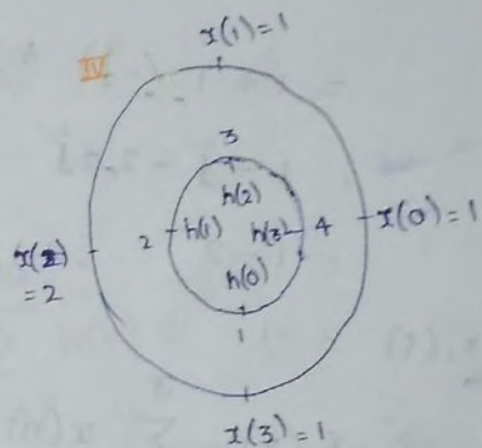 x(1)=1
IV
3
h(2)
2 h(1) h(3) 4 x(0)=1
x(2)
=2
h(0)
1
x(3)=1